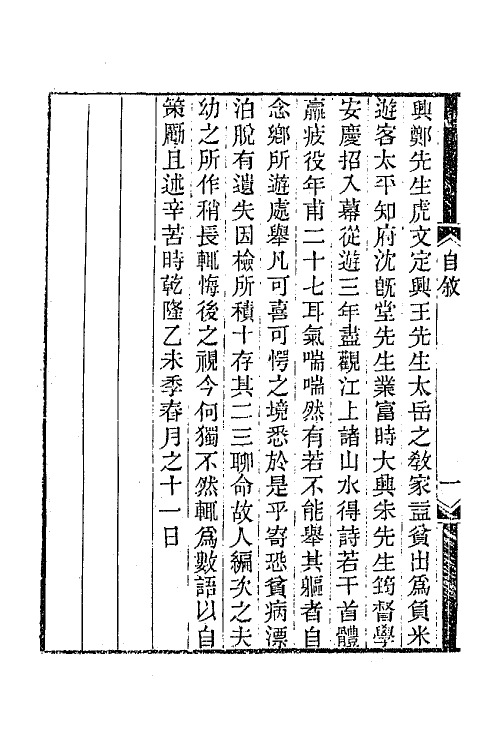 自敘
一
興鄭先生虎文定興王先生太岳之敎家益貧出爲負米
遊客太平知府沈旣堂先生業富時大興朱先生筠督學
安慶招入幕從遊三年盡觀江上諸山水得詩若干首體
羸疲役年甫二十七耳氣喘喘然有若不能舉其軀者自
念鄉所遊處舉凡可喜可愕之境悉於是乎寄恐貧病漂
泊脫有遺失因檢所積十存其二三聊命故人編次之夫
幼之所作稍長輒悔後之視今何獨不然輒爲數語以自
策勵且述辛苦時乾隆乙未季春月之十一日